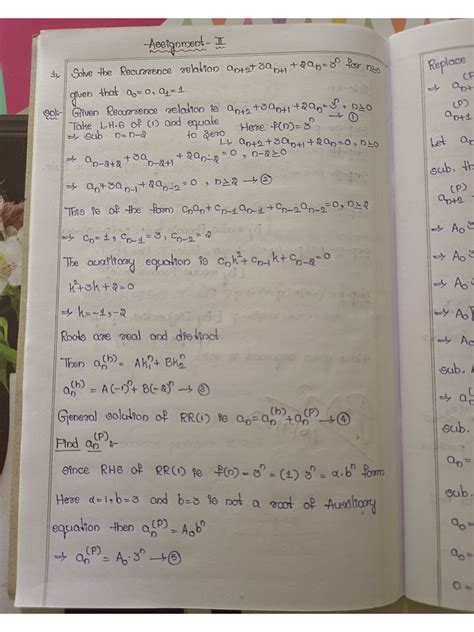 Assignment - II
1. Solve the Recurrence relation aₙ₊₂+3aₙ₊₁+2aₙ=3ⁿ for n≥0
given that a₀=0, a₁=1
Sol:- Given Recurrence relation is aₙ₊₂+3aₙ₊₁+2aₙ=3ⁿ, n≥0 → ①
Take L.H.S of (1) and equate to zero Here f(n)=3ⁿ
↳ aₙ₊₂+3aₙ₊₁+2aₙ=0, n≥0
⇒ sub n=n-2
⇒ aₙ₋₂₊₂+3aₙ₋₂₊₁+2aₙ₋₂=0, n-2≥0
⇒ aₙ+3aₙ₋₁+2aₙ₋₂=0, n≥2 → ②
This is of the form cₙaₙ+cₙ₋₁aₙ₋₁+cₙ₋₂aₙ₋₂=0, n≥2
⇒ cₙ=1, cₙ₋₁=3, cₙ₋₂=2
The auxiliary equation is cₙk²+cₙ₋₁k+cₙ₋₂=0
k²+3k+2=0
⇒ k=-1,-2
Roots are real and distinct
Then aₙ⁽ʰ⁾ = Ak₁ⁿ+Bk₂ⁿ
aₙ⁽ʰ⁾ = A(-1)ⁿ+B(-2)ⁿ → ③
General solution of RR(1) is aₙ=aₙ⁽ʰ⁾+aₙ⁽ᵖ⁾ → ④
Find aₙ⁽ᵖ⁾:-
Since RHS of RR(1) is f(n)=3ⁿ=(1) 3ⁿ = α.bⁿ form
Here α=1, b=3 and b=3 is not a root of Auxiliary
equation then aₙ⁽ᵖ⁾=A₀bⁿ
⇒ aₙ⁽ᵖ⁾ = A₀.3ⁿ → ⑤
Replace
Let
sub.
sub.
sub.
sub.